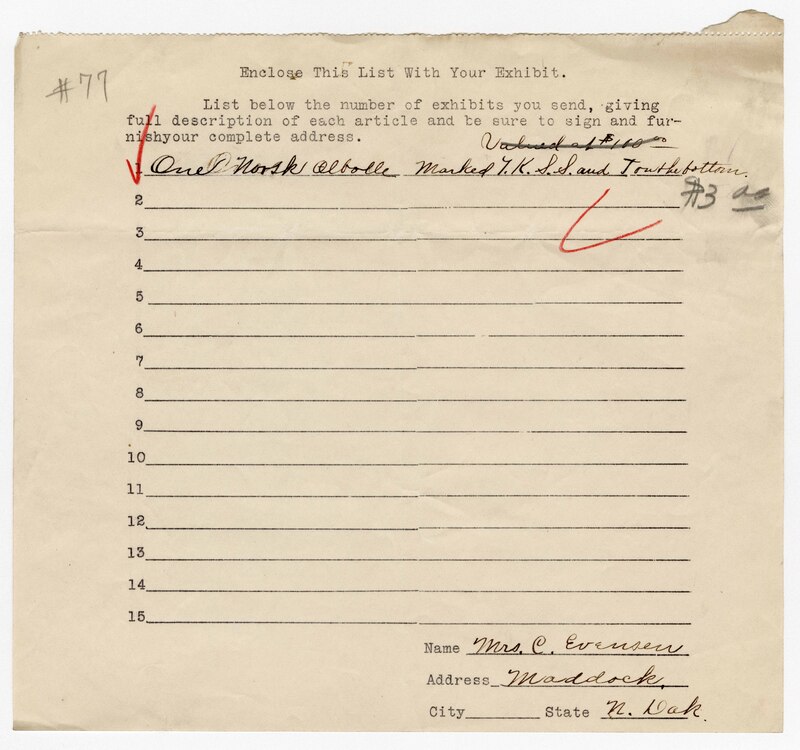 #77
Enclose This List With Your Exhibit.
List below the number of exhibits you send, giving
full description of each article and be sure to sign and fur-
nishyour complete address.
Valued at $100 00
1 One Norsk Olbolle Marked T. K. S. S. and T on the bottom.
$3 00
2
3
4
5
6
7
8
9
10
11
12
13
14
15
Name Mrs. C. Evensen
Address Maddock,
City State N. Dak.